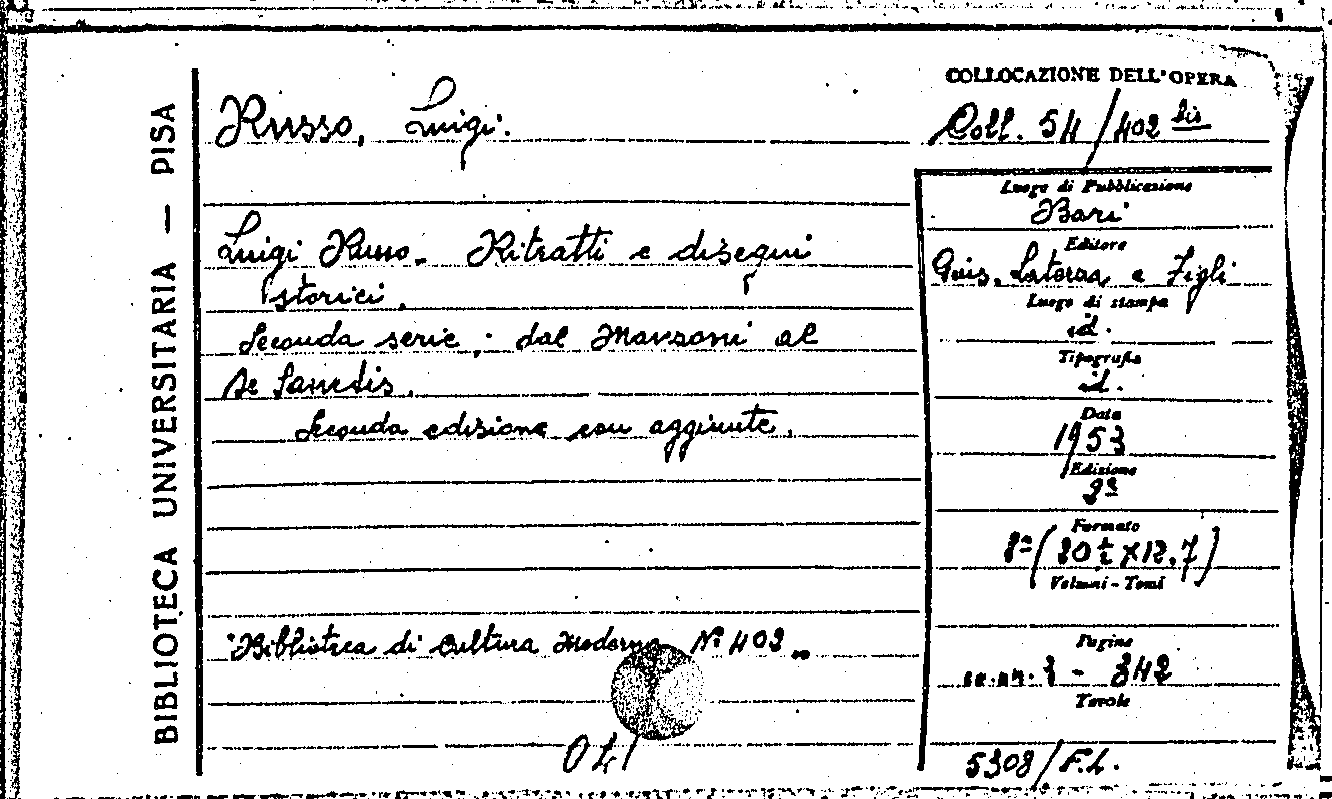 BIBLIOTECA UNIVERSITARIA — PISA
Russo, Luigi.
Luigi Russo. Ritratti e disegni
storici.
Seconda serie; dal Manzoni al
De Sanctis.
Seconda edizione con aggiunte.
"Biblioteca di Cultura Moderna Nº 402"
COLLOCAZIONE DELL'OPERA
Coll. 54/402 bis
Luogo di Pubblicazione
Bari
Editore
Gius. Laterza e Figli
Luogo di stampa
id.
Tipografia
id.
Data
1953
Edizione
2ª
Formato
8º (20½ × 12.7)
Volumi - Tomi
Pagine
- 342
Tavole
5308/F.L.